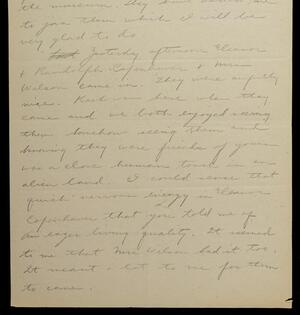 the museum. They have asked me
to join them which I will be
very glad to do.
Yesterday afternoon Eleanor
& Randolph Copenhaver & Miss
Wilson came in. They were awfully
nice. Karl was here when they
came and we both enjoyed seeing
them. Somehow seeing them and
knowing they were friends of yours
was a close human touch in an
alien land. I could sense that
quick nervous energy in Eleanor
Copenhaver that you told me of
An eager living quality. It seemed
to me that Miss Wilson had it too.
It meant a lot to me for them
to come.